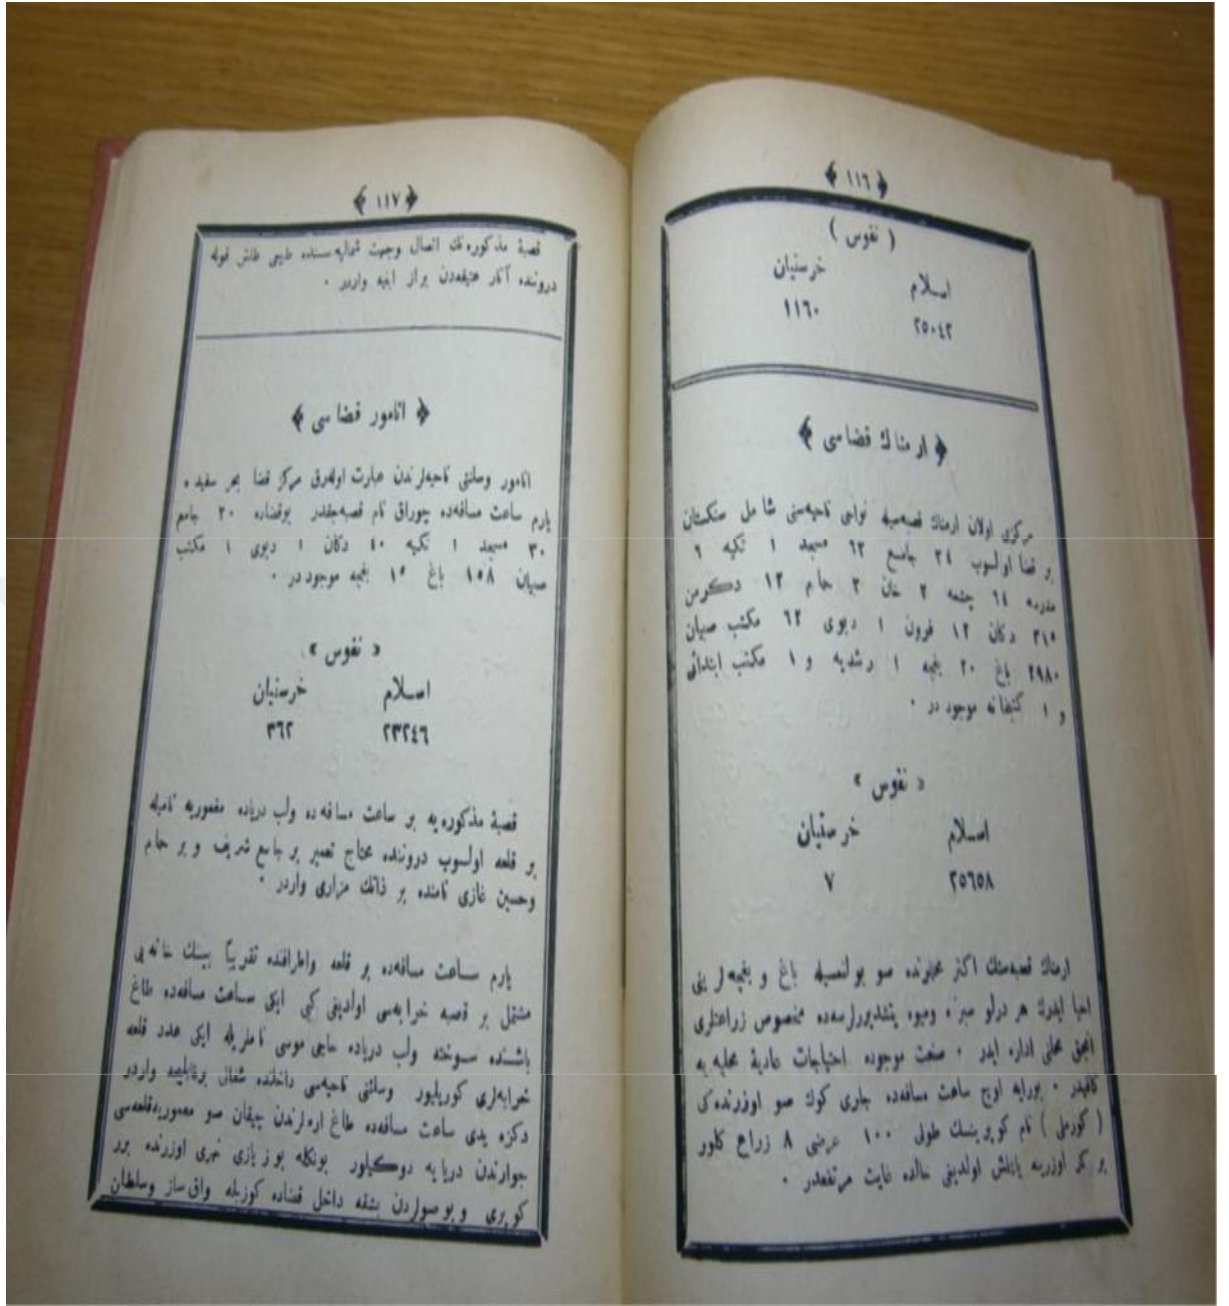 ﴿ ١١٦ ﴾
( نفوس )
اسلام خرستیان
٢٥٠٤٢ ١١٦٠
﴿ ارمناك قضاسی ﴾
مرکزی اولان ارمناك قصبه‌سیله نواحی ناحیه‌سنی شامل سنکستان
بر قضا اولوب ٢٤ جامع ٦٢ مسجد ١ تکیه ٦
مدرسه ٦٤ چشمه ٢ خان ٢ حمام ١٢ دکرمن
٣١٥ دکان ١٢ فرون ١ دبوی ٦٢ مکتب صبیان
٢٩٨٠ باغ ٢٠ بغچه ١ رشدیه و ١ مکتب ابتدائی
و ١ کتبخانه موجوددر ٠
« نفوس »
اسلام خرستیان
٢٥٦٥٨ ٧
ارمناك قصبه‌سنك اکثر محللرنده صو بولنمسیله باغ و بغچه‌لرینی
احیا ایدرك هر درلو سبزه ومیوه یتشدیرورلرسه‌ده مخصوص زراعتلری
انجق محلنی اداره ایدر ٠ صنعت موجوده احتیاجات عادیهٔ محلیه‌یه
کافیدر ٠ بورایه اوچ ساعت مسافه‌ده جاری کوك صو اوزرنده‌کی
( کورملی ) نام کوپرینك طولی ١٠٠ عرضی ٨ ذراع کلور
بر کمر اوزرینه یاپلمش اولدیغی حالده غایت مرتفعدر ٠
﴿ ١١٧ ﴾
قصبهٔ مذکوره‌نك اتصال وجهت شمالیه‌سنده طبیعی طاش قوله
دروننده آثار عتیقه‌دن براز ابنیه واردر ٠
﴿ انامور قضاسی ﴾
انامور وسلنتی ناحیه‌لرندن عبارت اوله‌رق مرکز قضا بحر سفیده
یارم ساعت مسافه‌ده چوراق نام قصبه‌جقدر بوقضاده ٢٠ جامع
٣٠ مسجد ١ تکیه ٤٠ دکان ١ دبوی ١ مکتب
صبیان ١٥٨ باغ ١٥ بغچه موجوددر ٠
« نفوس »
اسلام خرستیان
٢٣٢٤٦ ٣٦٢
قصبهٔ مذکوره‌یه بر ساعت مسافه‌ده ولب دریاده معموریه نامیله
بر قلعه اولوب دروننده محتاج تعمیر بر جامع شریف و بر حمام
وحسین غازی نامنده بر ذاتك مزاری واردر ٠
یارم ساعت مسافه‌ده بر قلعه واطرافنده تقریباً بیك خانه‌یی
مشتمل بر قصبه خرابه‌سی اولدیغی کبی ایکی ساعت مسافه‌ده طاغ
باشنده سوخته ولب دریاده حاجی موسی ناملریله ایکی عدد قلعه
خرابه‌لری کوریلیور وسلنتی ناحیه‌سی داخلنده شفالی برقاپلیجه واردر
دکزه یدی ساعت مسافه‌ده طاغ اره‌لرندن چیقان صو معموریه‌قلعه‌سی
جوارندن دریایه دوکیلور بونکله بوزیازی نهری اوزرنده برر
کوپری و بو صولردن بشقه داخل قضاده کوزجله واق ساز وسلطان